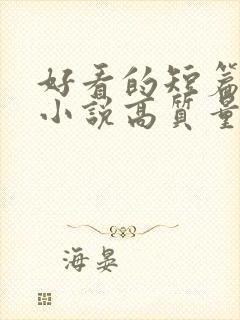 好看的短篇
小说高质量
海晏